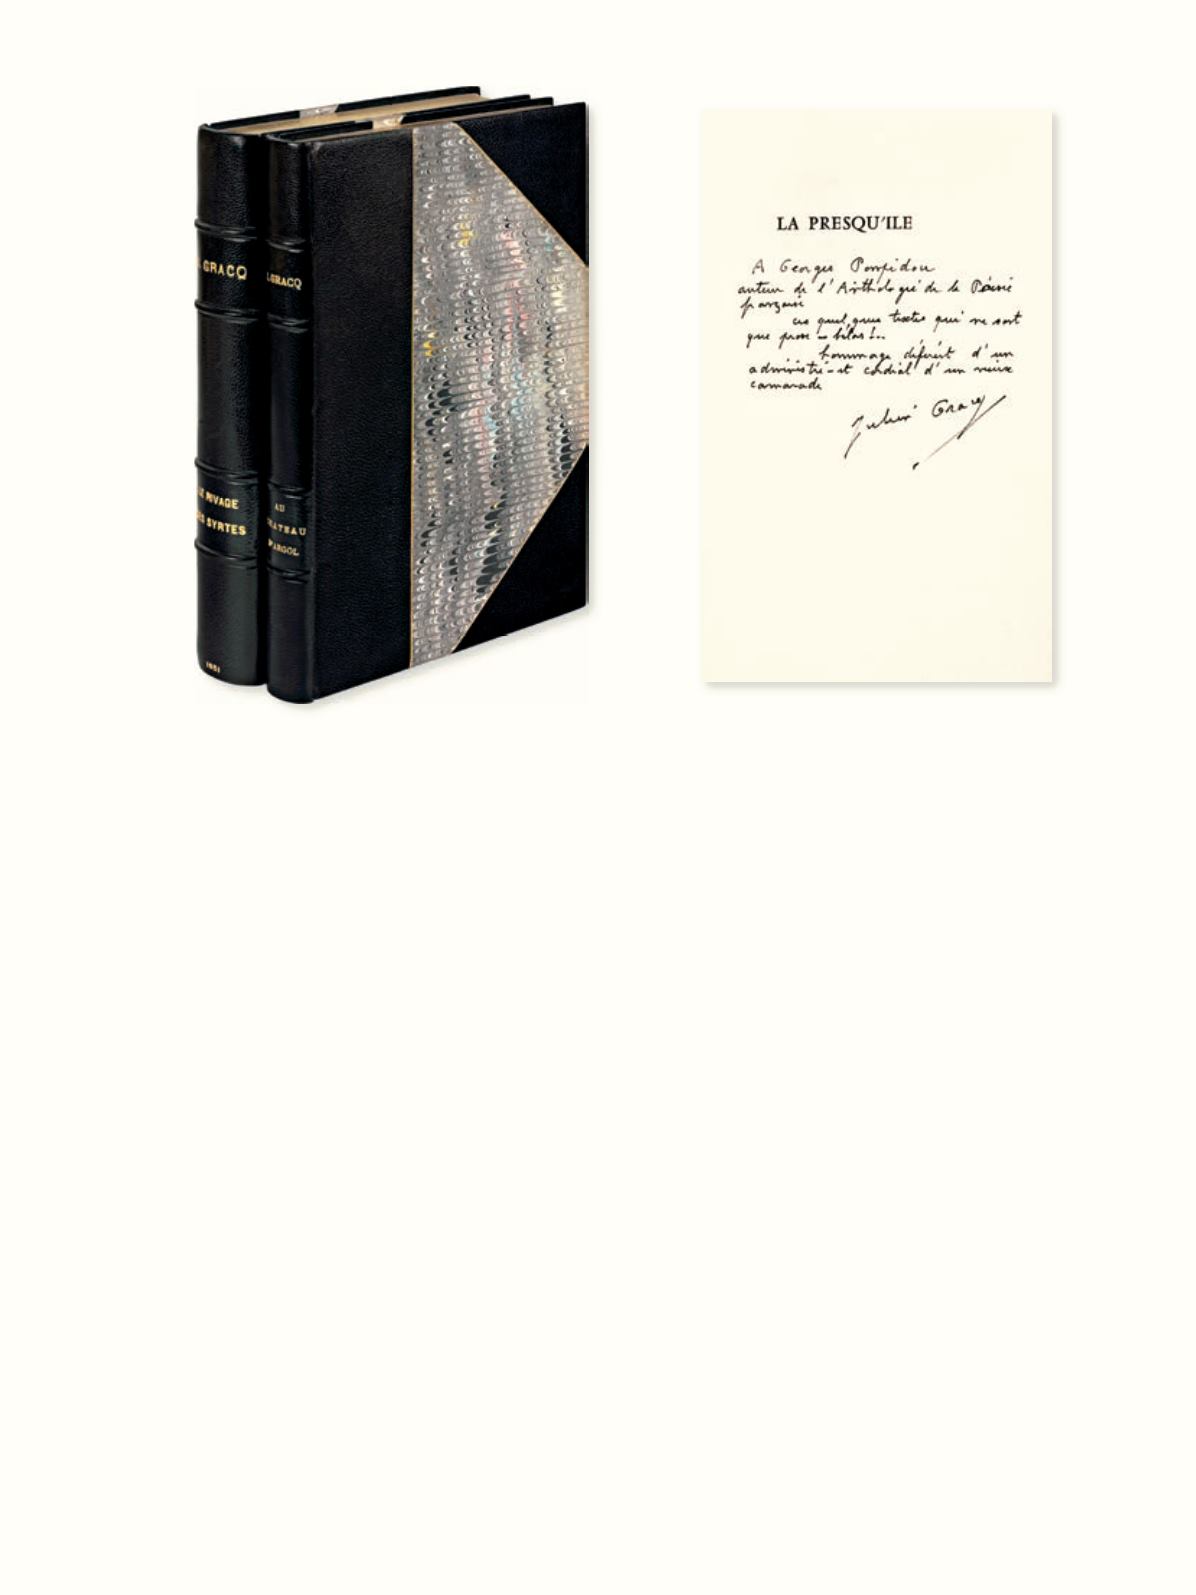 . GRACQ
LE RIVAGE
DES SYRTES
1951
J. GRACQ
AU
CHATEAU
D'ARGOL
LA PRESQU'ILE
A Georges Pompidou
auteur de l'Anthologie de la Poésie
française
ces quelques textes qui ne sont
que prose – hélas!..
hommage déférent d'un
administré – et cordial d'un vieux
camarade
Julien Gracq